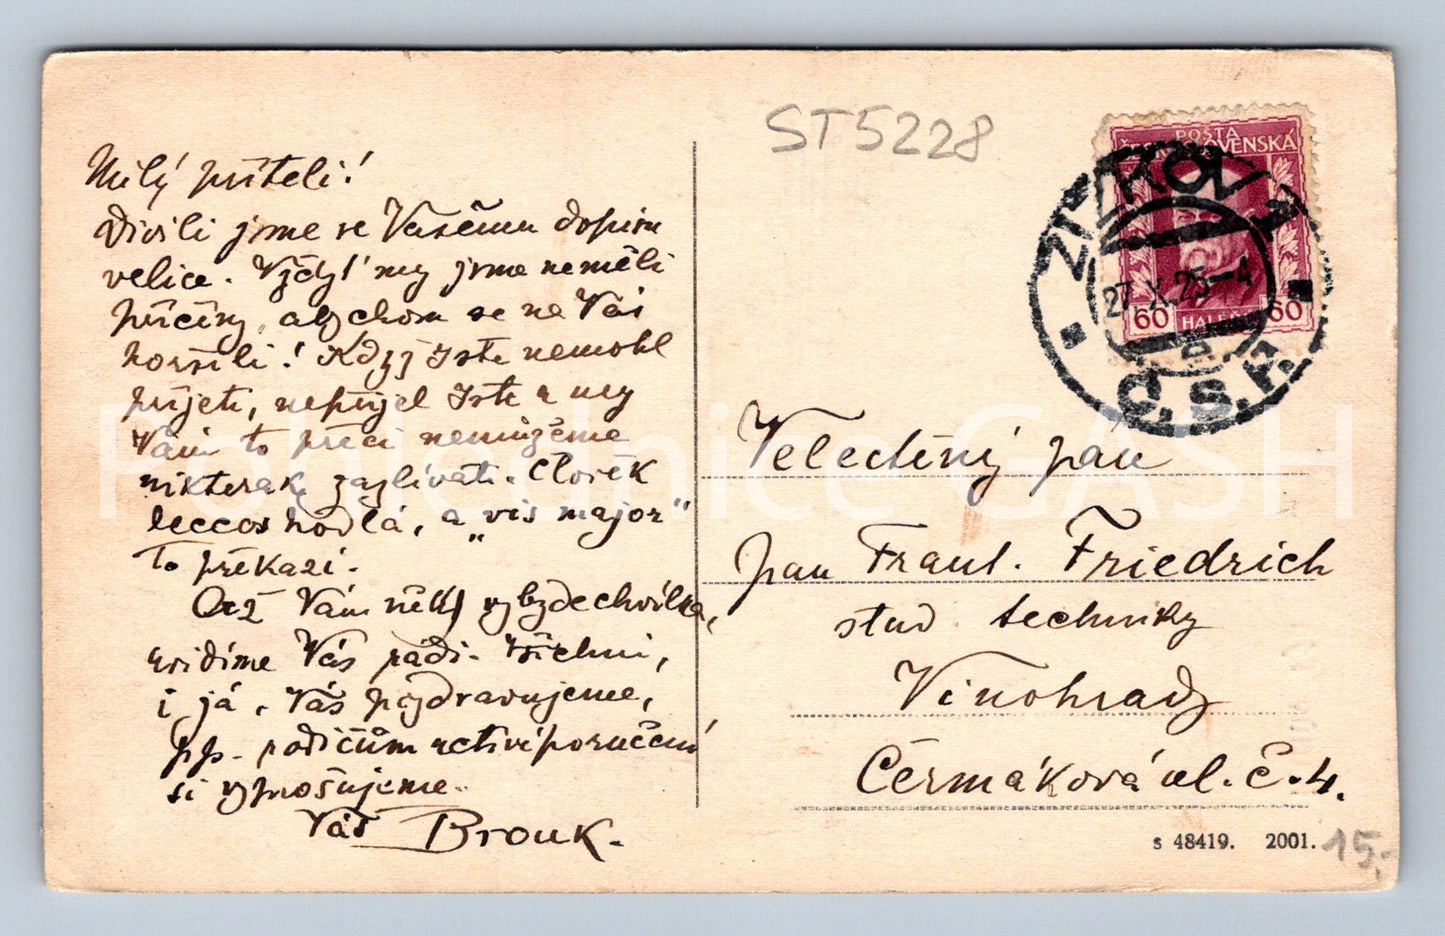 Milý příteli!
Divili jsme se Vašemu dopisu
velice. Vždyť my jsme neměli
příčiny, abychom se na Vás
horšili! Když jste nemohl
přijeti, nepřijel jste a my
Vám to přeci nemůžeme
nikterak zazlívati. Člověk
leccos hodlá, a „vis major"
to překazí.
Až Vám někdy vybyde chvilka,
uvidíme Vás rádi. Všichni,
i já, Vás pozdravujeme,
pp. rodičům uctivé poručení
si vyprošujeme.
Váš Brouk.
ST5228
POŠTA
ČESKOSLOVENSKÁ
60 HALÉŘŮ 60
ŽIŽKOV 1
27.X.25-4
Č.S.P.
Velectěný pán
pan Frant. Friedrich
stud. techniky
Vinohrady
Čermáková ul. č. 4.
s 48419. 2001.
15,-
Pohlednice GASH